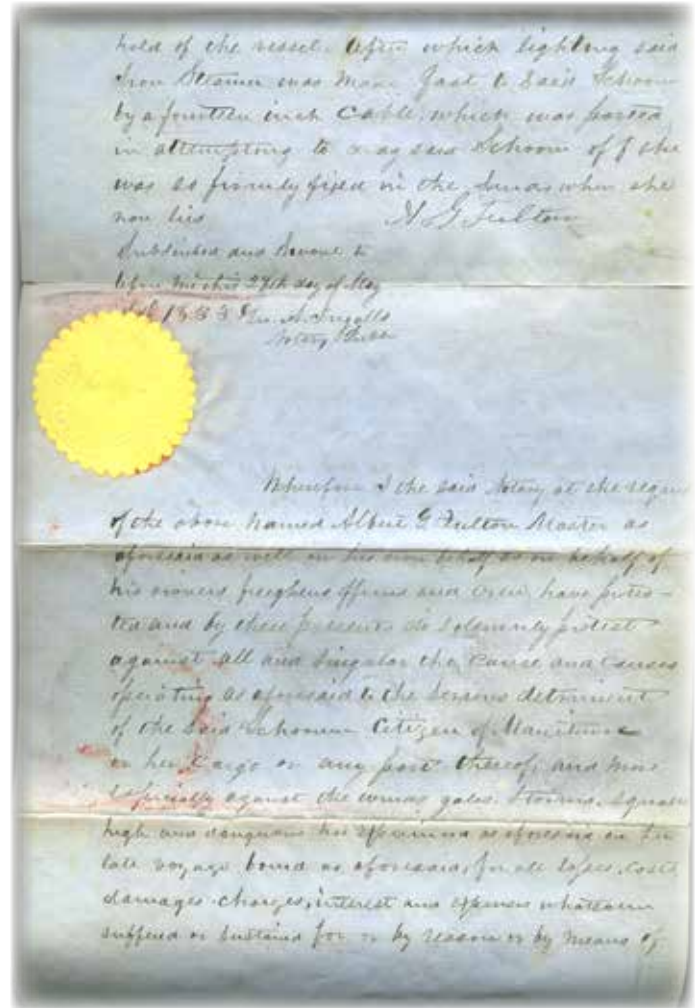 hold of the vessel. After which lighting said
Iron Steamer was made fast to said Schooner
by a fourteen inch Cable, which was parted
in attempting to drag said Schooner off she
was so firmly fixed in the sands where she
now lies A G Fulton
Subscribed and Sworne to
before me this 27th day of May
AD 1853 A. Ingalls
Notary Public
Wherefore I the said Notary at the request
of the above named Albert G Fulton Master as
aforesaid as well on his own behalf as on behalf of
his owners freighters officers and crew, have protes-
ted and by these presents do solemnly protest
against all and singular the cause and causes
operating as aforesaid to the serious detriment
of the said Schooner Citizen of Manitowoc
or her Cargo or any part thereof, and more
especially against the winds gales, storms, squalls
high and dangerous seas experienced as aforesaid on her
late voyage bound as aforesaid, for all losses, costs
damages charges, interest and expenses whatsoever
suffered or sustained for or by reason or by means of